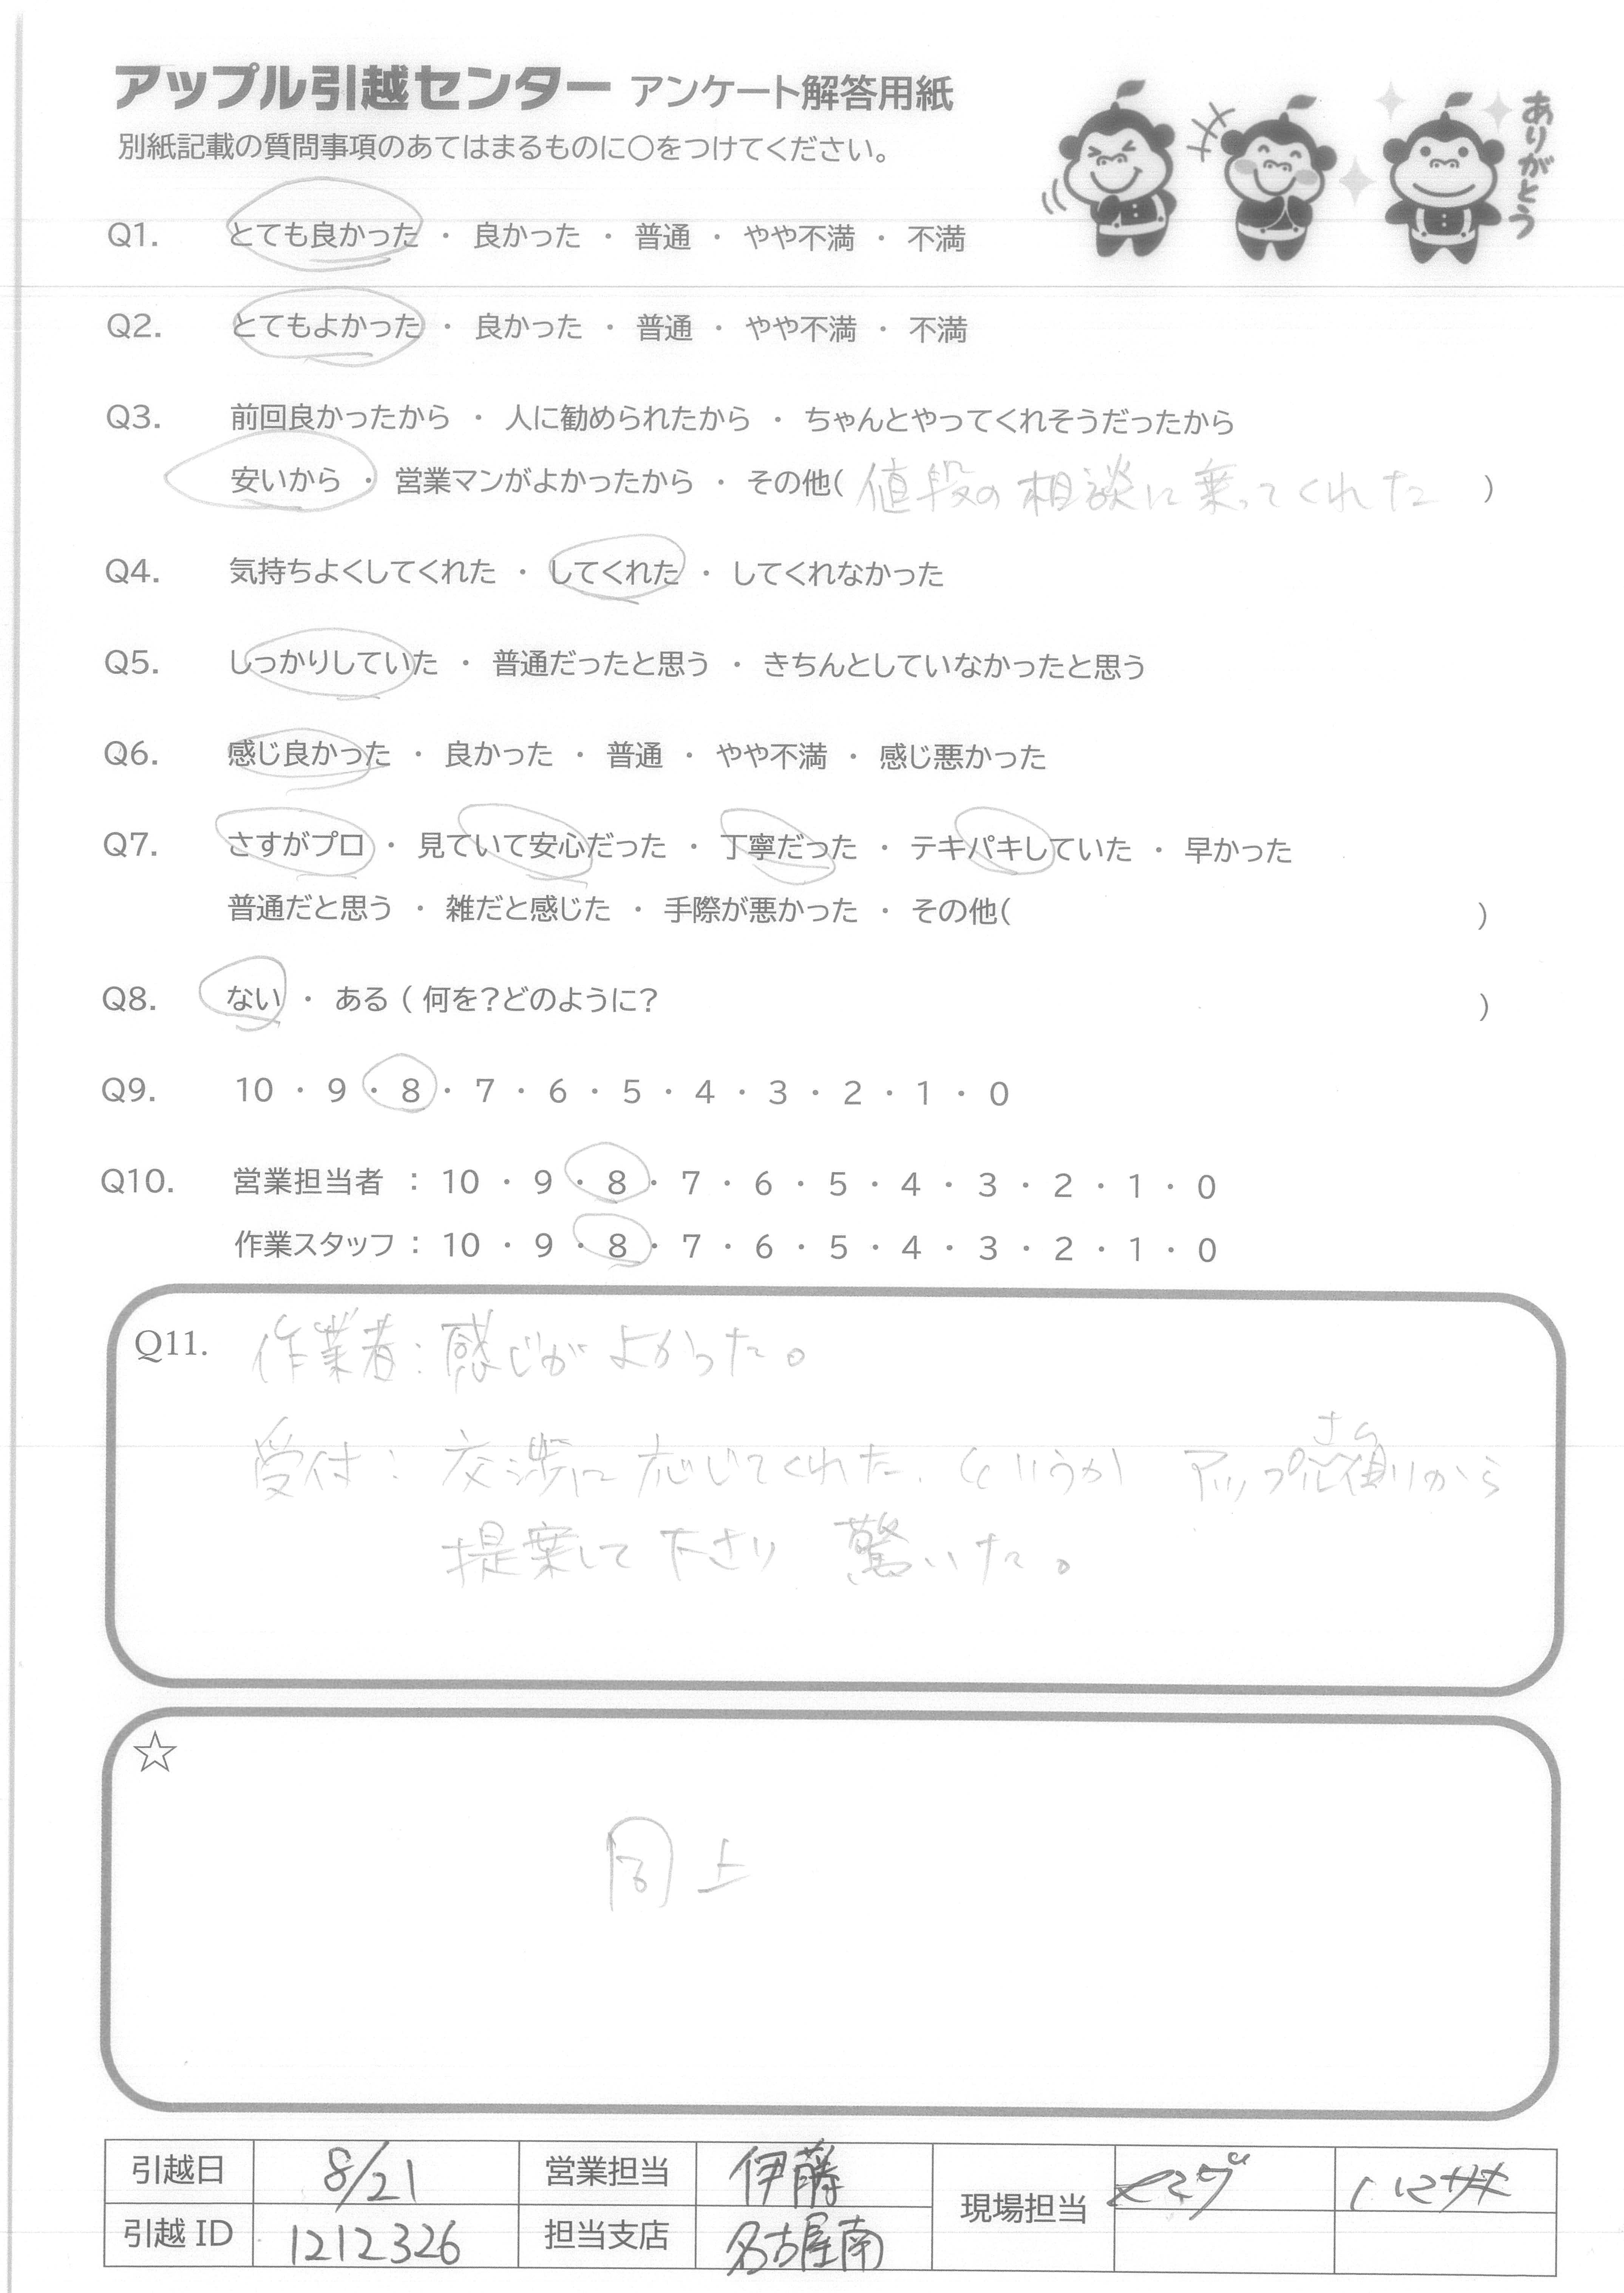 アップル引越センター アンケート解答用紙
別紙記載の質問事項のあてはまるものに○をつけてください。
ありがとう
Q1. とても良かった ・ 良かった ・ 普通 ・ やや不満 ・ 不満
Q2. とてもよかった ・ 良かった ・ 普通 ・ やや不満 ・ 不満
Q3. 前回良かったから ・ 人に勧められたから ・ ちゃんとやってくれそうだったから
安いから ・ 営業マンがよかったから ・ その他( 値段の相談に乗ってくれた )
Q4. 気持ちよくしてくれた ・ してくれた ・ してくれなかった
Q5. しっかりしていた ・ 普通だったと思う ・ きちんとしていなかったと思う
Q6. 感じ良かった ・ 良かった ・ 普通 ・ やや不満 ・ 感じ悪かった
Q7. さすがプロ ・ 見ていて安心だった ・ 丁寧だった ・ テキパキしていた ・ 早かった
普通だと思う ・ 雑だと感じた ・ 手際が悪かった ・ その他( )
Q8. ない ・ ある ( 何を?どのように? )
Q9. 10 ・ 9 ・ 8 ・ 7 ・ 6 ・ 5 ・ 4 ・ 3 ・ 2 ・ 1 ・ 0
Q10. 営業担当者 : 10 ・ 9 ・ 8 ・ 7 ・ 6 ・ 5 ・ 4 ・ 3 ・ 2 ・ 1 ・ 0
作業スタッフ : 10 ・ 9 ・ 8 ・ 7 ・ 6 ・ 5 ・ 4 ・ 3 ・ 2 ・ 1 ・ 0
Q11. 作業者:感じがよかった。
受付: 交渉に応じてくれた。というか アップルさん側から
提案して下さり 驚いた。
☆
同上
引越日 8/21 営業担当 伊藤 現場担当
引越ID 1212326 担当支店 名古屋南